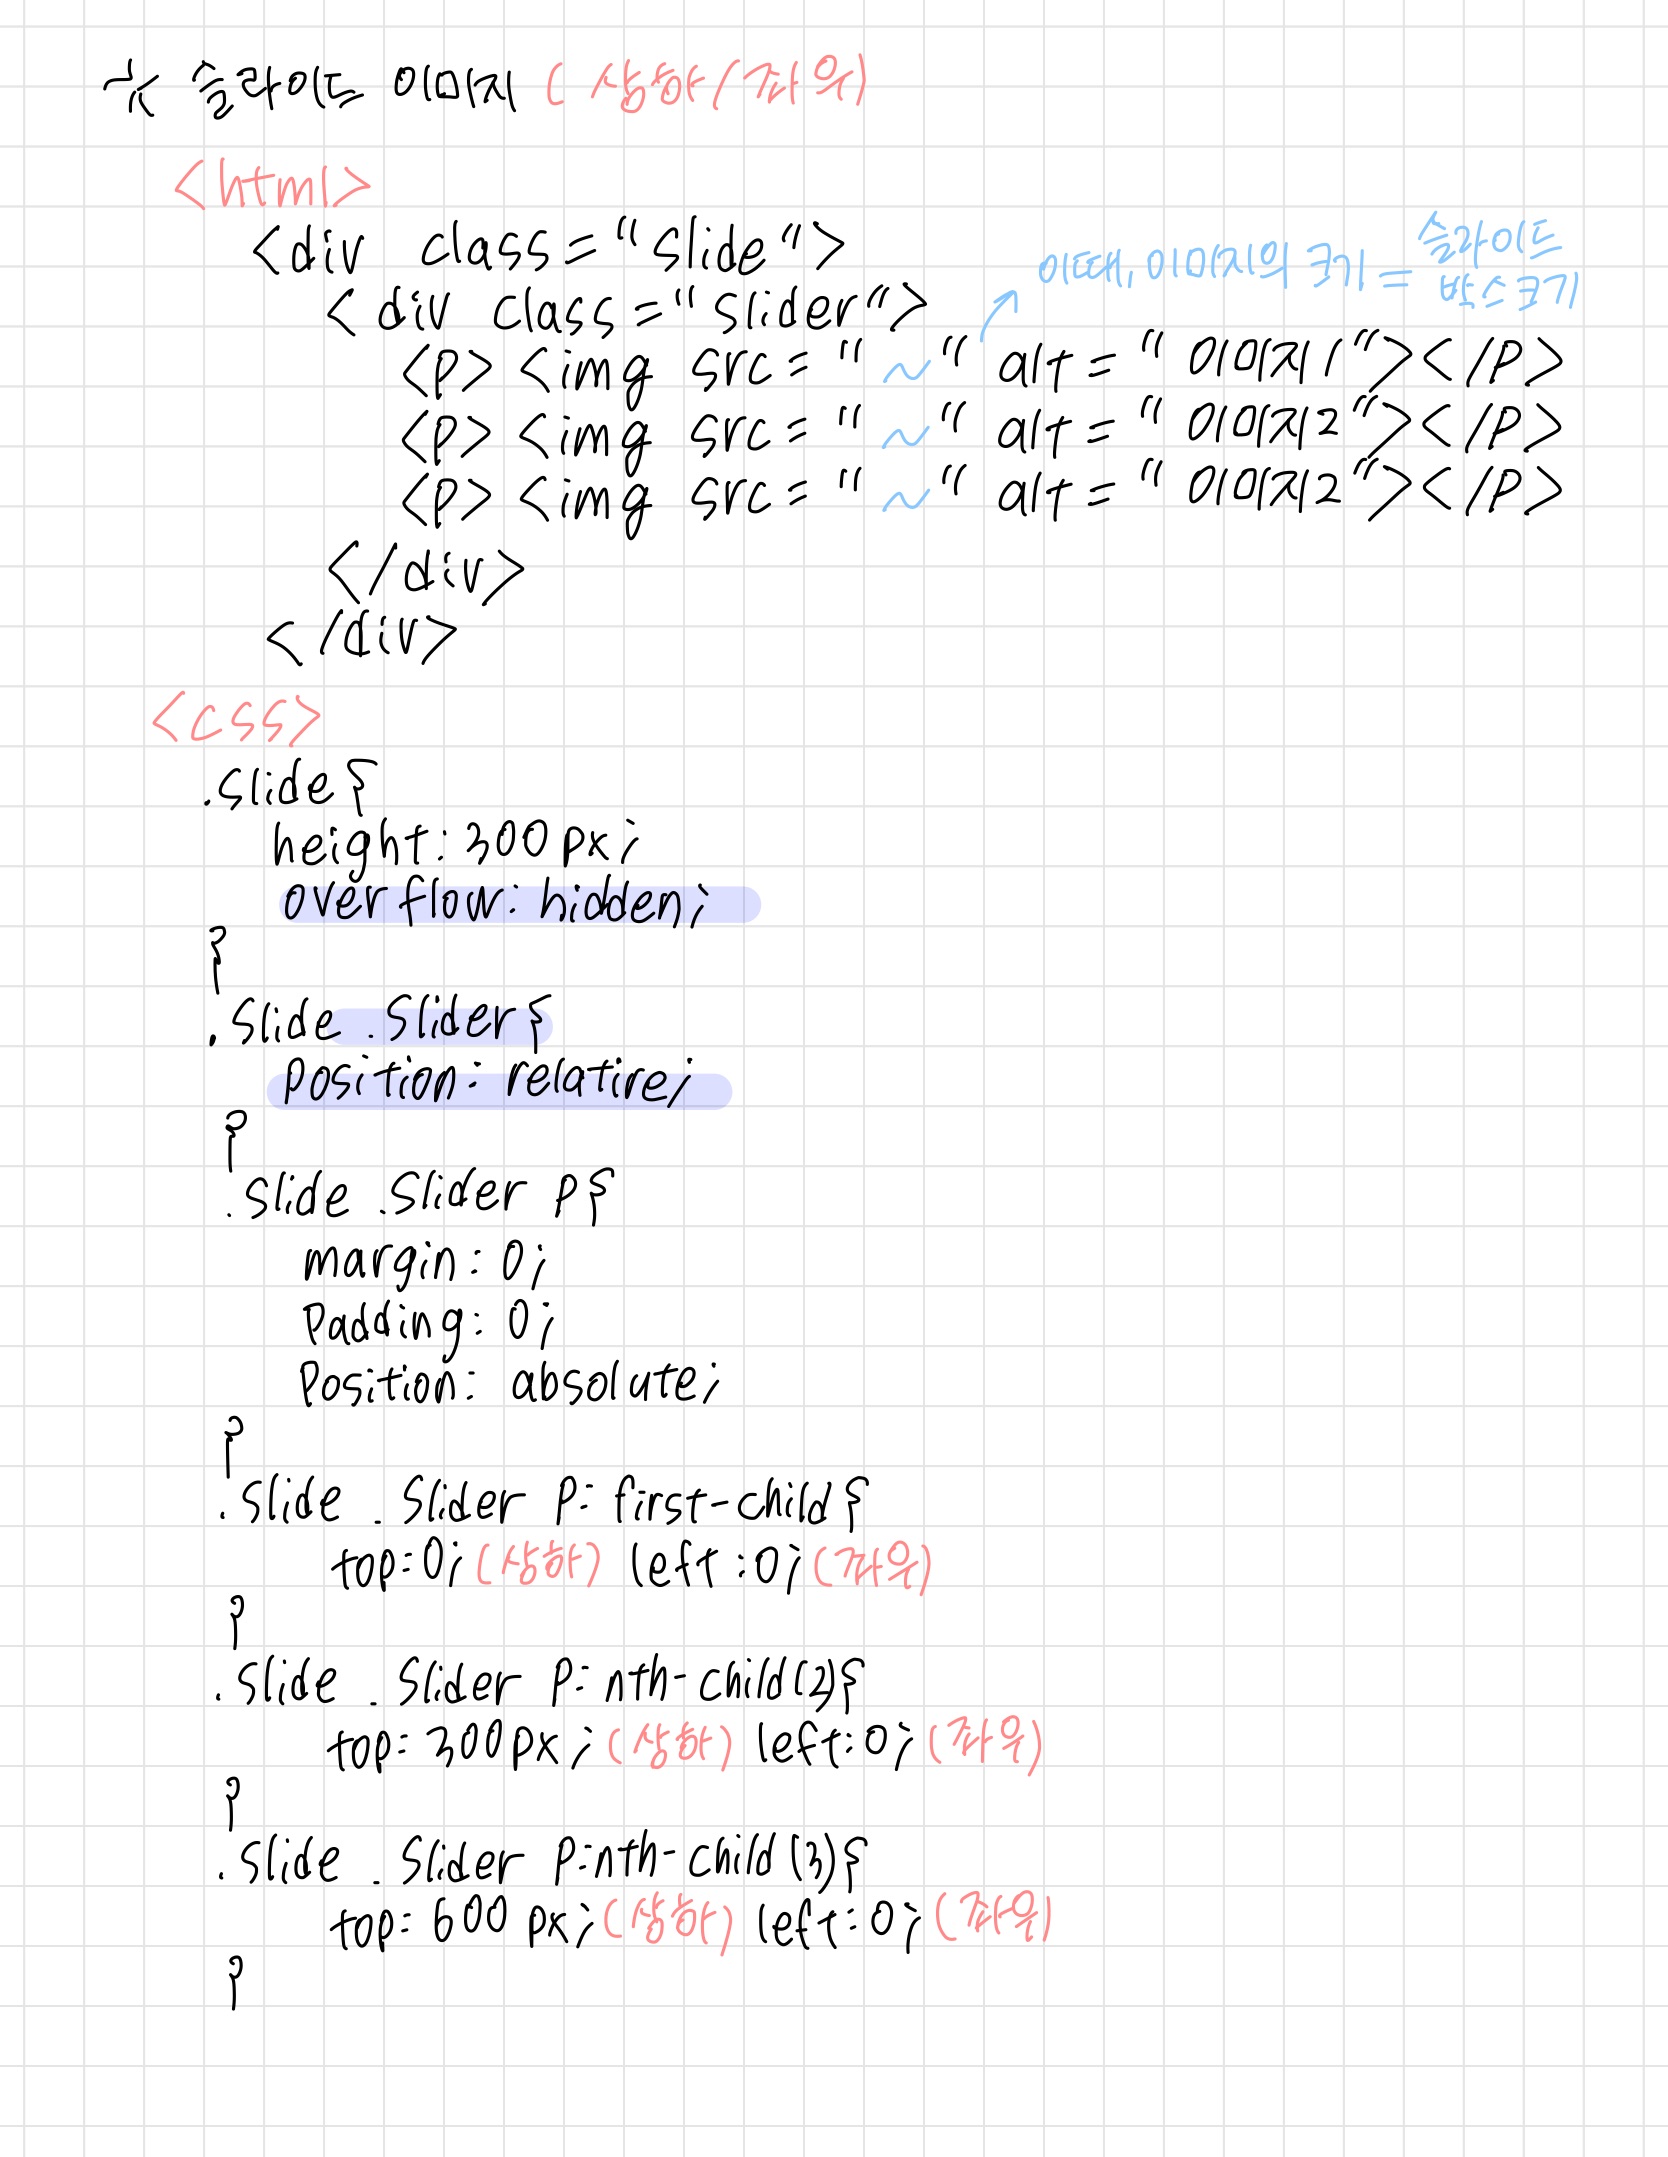 * 슬라이드 이미지 (상하/좌우)
<html>
<div class="slide">
이때, 이미지의 크기 = 슬라이드 박스크기
<div class="slider">
<p><img src="~" alt="이미지1"></p>
<p><img src="~" alt="이미지2"></p>
<p><img src="~" alt="이미지2"></p>
</div>
</div>
<css>
.slide{
height: 300px;
overflow: hidden;
}
.slide .slider{
position: relative;
}
.slide .slider p{
margin: 0;
padding: 0;
position: absolute;
}
.slide .slider p: first-child{
top: 0; (상하) left: 0; (좌우)
}
.slide .slider p: nth-child(2){
top: 300px; (상하) left: 0; (좌우)
}
.slide .slider p: nth-child(3){
top: 600px; (상하) left: 0; (좌우)
}